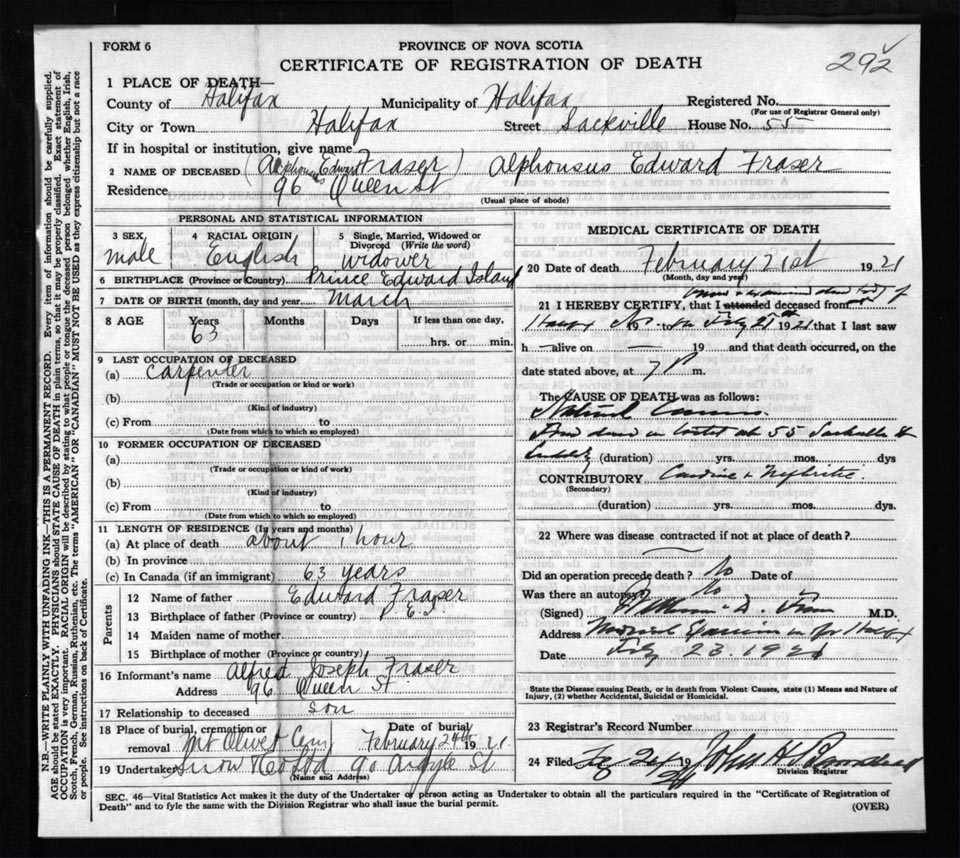 FORM 6
PROVINCE OF NOVA SCOTIA
292
CERTIFICATE OF REGISTRATION OF DEATH
1 PLACE OF DEATH
County of Halifax Municipality of Halifax Registered No.
(For use of Registrar General only)
City or Town Halifax Street Sackville House No. 55
If in hospital or institution, give name
2 NAME OF DECEASED (Alphonsus Edward Fraser) Alphonsus Edward Fraser
Residence 96 Queen St
(Usual place of abode)
PERSONAL AND STATISTICAL INFORMATION
3 SEX, male
4 RACIAL ORIGIN English
5 Single, Married, Widowed or Divorced (Write the word) widower
6 BIRTHPLACE (Province or Country) Prince Edward Island
7 DATE OF BIRTH (month, day and year) March
8 AGE Years 63 Months Days If less than one day, hrs. or min.
9 LAST OCCUPATION OF DECEASED
(a) Carpenter
(Trade or occupation or kind of work)
(b)
(Kind of industry)
(c) From to
(Date from which to which so employed)
10 FORMER OCCUPATION OF DECEASED
(a)
(Trade or occupation or kind of work)
(b)
(Kind of industry)
(c) From to
(Date from which to which so employed)
11 LENGTH OF RESIDENCE (In years and months)
(a) At place of death about 1 hour
(b) In province
(c) In Canada (if an immigrant) 63 years
Parents
12 Name of father Edward Fraser
13 Birthplace of father (Province or country) P.E.I.
14 Maiden name of mother
15 Birthplace of mother (Province or country)
16 Informant's name Alfred Joseph Fraser
Address 96 Queen St
17 Relationship to deceased son
18 Place of burial, cremation or removal Mt Olivet Cem Date of burial February 24th 1921.
19 Undertaker Snow & Co Ltd 90 Argyle St
(Name and Address)
MEDICAL CERTIFICATE OF DEATH
20 Date of death February 21st 1921
(Month, day and year)
21 I HEREBY CERTIFY, that I attended deceased from
19 to 21st 1921 that I last saw
h alive on 19 and that death occurred, on the
date stated above, at 7 P m.
The CAUSE OF DEATH was as follows:
Natural Causes
dead in at 55 Sackville St
suddenly (duration) yrs. mos. dys
CONTRIBUTORY Cardiac + Nephritis.
(Secondary)
(duration) yrs. mos. dys.
22 Where was disease contracted if not at place of death?
Did an operation precede death? No Date of
Was there an autopsy? No
(Signed) M.D.
Address Medical Examiner for Halifax
Date Feby 23. 1921
State the Disease causing Death, or in death from Violent Causes, state (1) Means and Nature of Injury, (2) whether Accidental, Suicidal or Homicidal.
23 Registrar's Record Number
24 Filed 24 19
Division Registrar
SEC. 46—Vital Statistics Act makes it the duty of the Undertaker or person acting as Undertaker to obtain all the particulars required in the "Certificate of Registration of
Death" and to fyle the same with the Division Registrar who shall issue the burial permit.
(OVER)
N.B.—WRITE PLAINLY WITH UNFADING INK—THIS IS A PERMANENT RECORD. Every item of information should be carefully supplied.
AGE should be stated EXACTLY. PHYSICIANS should STATE CAUSE OF DEATH in plain terms, so that it may be properly classified. Exact statement of
OCCUPATION is very important. RACIAL ORIGIN will be described by stating to what people or tongue the deceased person belonged whether English, Irish,
Scotch, French, German, Russian, Ruthenian, etc. The terms "AMERICAN" OR "CANADIAN" MUST NOT BE USED as they express citizenship but not a race
or people. See instructions on back of Certificate.